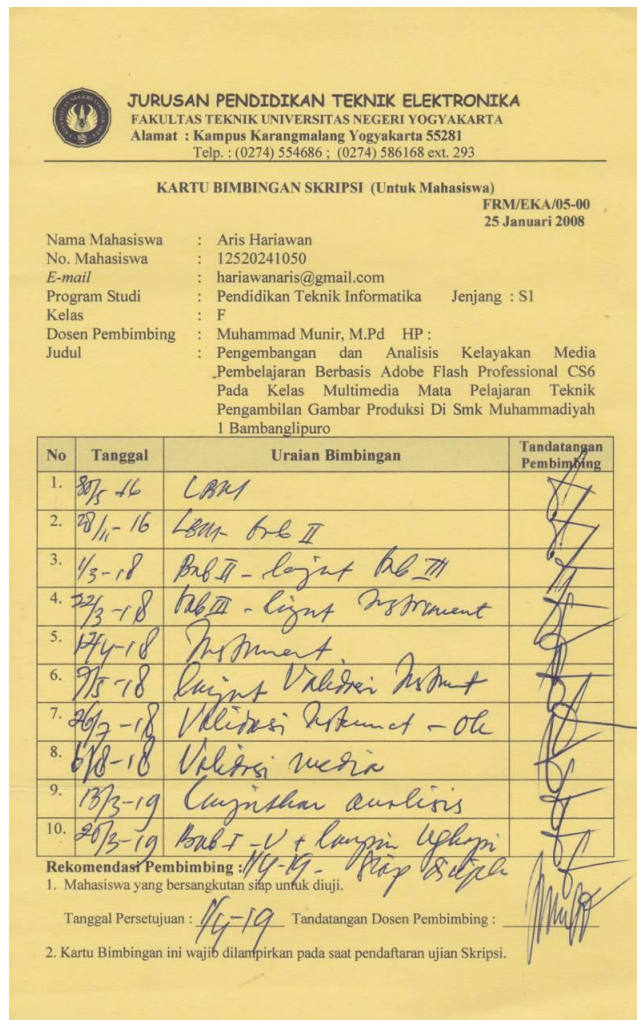 JURUSAN PENDIDIKAN TEKNIK ELEKTRONIKA
FAKULTAS TEKNIK UNIVERSITAS NEGERI YOGYAKARTA
Alamat : Kampus Karangmalang Yogyakarta 55281
Telp. : (0274) 554686 ; (0274) 586168 ext. 293
KARTU BIMBINGAN SKRIPSI (Untuk Mahasiswa)
FRM/EKA/05-00
25 Januari 2008
Nama Mahasiswa : Aris Hariawan
No. Mahasiswa : 12520241050
E-mail : hariawanaris@gmail.com
Program Studi : Pendidikan Teknik Informatika Jenjang : S1
Kelas : F
Dosen Pembimbing : Muhammad Munir, M.Pd HP :
Judul : Pengembangan dan Analisis Kelayakan Media
Pembelajaran Berbasis Adobe Flash Professional CS6
Pada Kelas Multimedia Mata Pelajaran Teknik
Pengambilan Gambar Produksi Di Smk Muhammadiyah
1 Bambanglipuro
No Tanggal Uraian Bimbingan Tandatangan
Pembimbing
1. 30/5-16 LBM
2. 28/11-16 LBM Bab II
3. 1/3-18 Bab II - lanjut Bab III
4. 22/3-18 Bab III - lanjut Instrument
5. 17/4-18 Instrument
6. lanjut Validasi
7. 26/7-18 Validasi - ok
8. Validasi media
9. 13/3-19 Lanjutkan analisis
10. 20/3-19 Bab I - V + lengkapi
Rekomendasi Pembimbing : 1/4-19 - Siap
1. Mahasiswa yang bersangkutan siap untuk diuji.
Tanggal Persetujuan : 1/4-19 Tandatangan Dosen Pembimbing :
2. Kartu Bimbingan ini wajib dilampirkan pada saat pendaftaran ujian Skripsi.